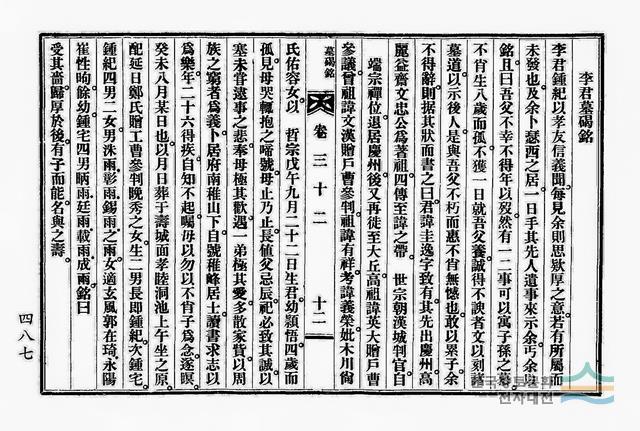 李君墓碣銘
李君鍾紀以孝友信義聞每見余則思欵厚之意若有所屬而
未發也及余卜瑟西之居一日手其先人遺事來示余丐余以
銘且曰吾父不幸不得年以歿然有一二事可以寓子孫之慕
不肖生八歲而孤不獲一日就吾父養誠得不諛者文以刻諸
墓道以示後人是與吾父不朽而惠不肖無憾也敢以累子余
不得辭則据其狀而書之曰君諱圭逸字致有其先出慶州高
麗益齋文忠公爲著祖四傳至諱之帶 世宗朝漢城判官自
端宗禪位退居慶州後又再徙至大丘高祖諱英大贈戶曹
參議曾祖諱文漢贈戶曹參判祖諱有祥考諱義榮妣木川尙
墓碣銘
卷三十二
十二
氏佑容女以 哲宗戊午九月二十二日生君幼穎悟四歲而
孤見母哭輒抱之啼號母止乃止長値父忌辰祀必致其誠以
塞未甞逮事之悲奉母極其歡遇 弟極其愛多散家貲以周
族之窮者爲義卜居府南稚山下自號稚峰居士讀書求志以
爲樂年二十六得疾自知不起嘱母以勿以不肖子爲念遂暝
癸未八月某日也以月日葬于壽城面孝睦洞池上午坐之原
配延日鄭氏贈工曹參判晚秀之女生二男長即鍾紀次鍾宅
鍾紀四男二女男洙雨彰雨錫雨之雨女適玄風郭在琦永陽
崔性昫餘幼鍾宅四男昞雨廷雨載雨成雨銘曰
受其嗇歸厚於後有子而能名與之壽
四八七
한국학종합DB
전사대전